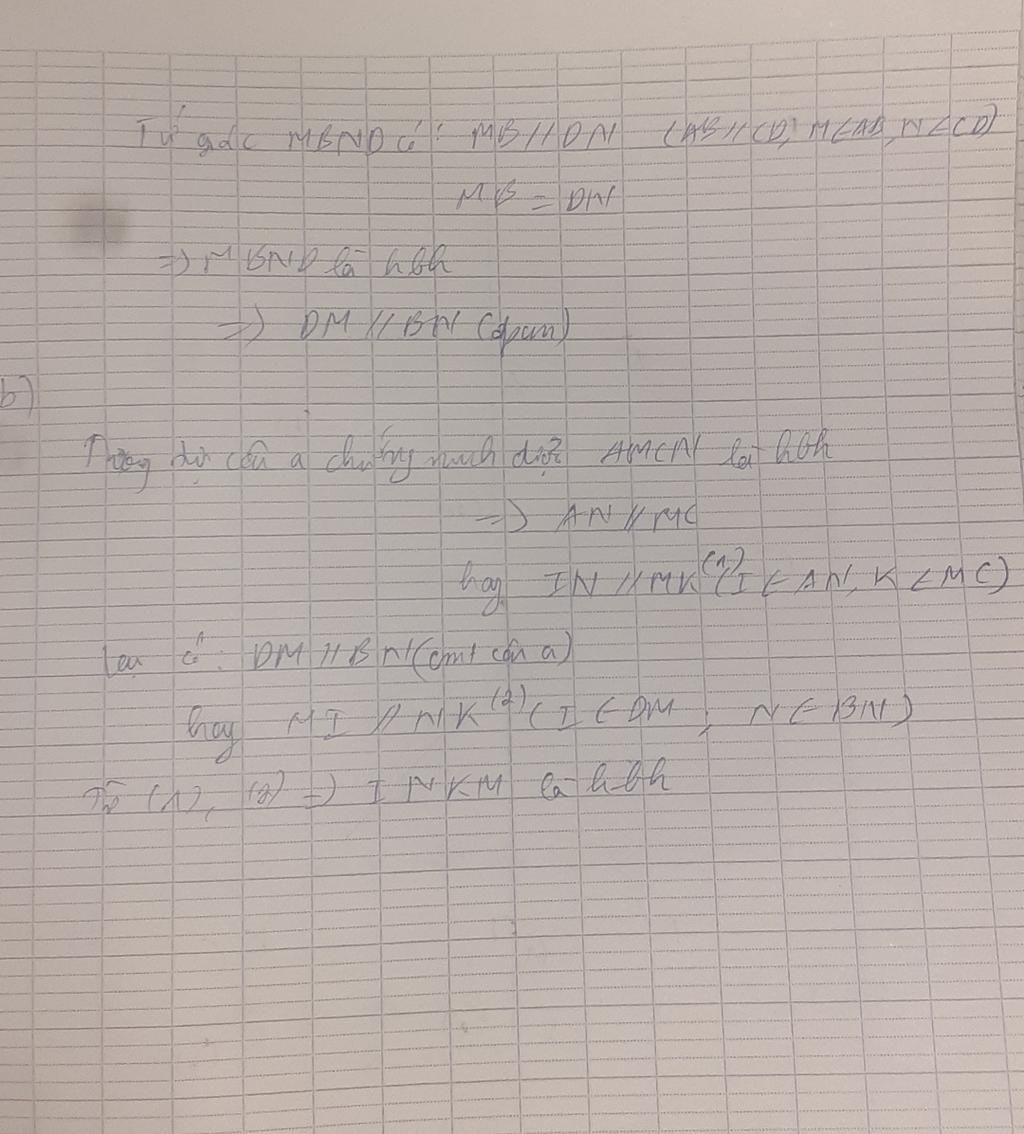 Tứ giác MBND có: MB // DN (AB // CD, M ∈ AB, N ∈ CD)
MB = DN
=> MBND là hbh
=> DM // BN (đpcm)
b)
Tương tự câu a chứng minh được AMCN là hbh
=> AN // MC
hay IN // MK (1) (I ∈ AN, K ∈ MC)
Lại có: DM // BN (cmt câu a)
hay MI // NK (2) (I ∈ DM ; N ∈ BN)
Từ (1), (2) => INKM là hbh